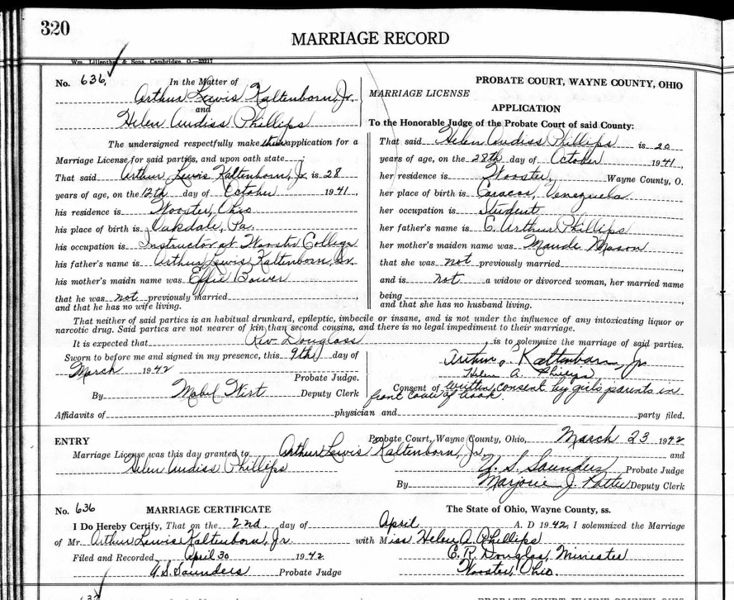 320
MARRIAGE RECORD
Wm. Lilienthal & Sons. Cambridge, O.
No. 636 In the Matter of
Arthur Lewis Kaltenborn, Jr.
and
Helen Audiss Phillips
The undersigned respectfully make this application for a
Marriage License for said parties, and upon oath state:
That said Arthur Lewis Kaltenborn, Jr. is 28
years of age, on the 12th day of October 1941
his residence is Wooster, Ohio
his place of birth is Oakdale, Pa.
his occupation is Instructor at Wooster College
his father's name is Arthur Lewis Kaltenborn, Sr.
his mother's maidn name was Effie Bower
that he was not previously married
and that he has no wife living.
PROBATE COURT, WAYNE COUNTY, OHIO
MARRIAGE LICENSE
APPLICATION
To the Honorable Judge of the Probate Court of said County:
That said Helen Audiss Phillips is 20
years of age, on the 28th day of October 1941
her residence is Wooster, Wayne County, O.
her place of birth is Caracas, Venezuela
her occupation is Student
her father's name is C. Arthur Phillips
her mother's maiden name was Maude Mason
that she was not previously married
and is not a widow or divorced woman, her married name
being
and that she has no husband living.
That neither of said parties is an habitual drunkard, epileptic, imbecile or insane, and is not under the influence of any intoxicating liquor or
narcotic drug. Said parties are not nearer of kin than second cousins, and there is no legal impediment to their marriage.
It is expected that Rev. Douglass is to solemnize the marriage of said parties.
Sworn to before me and signed in my presence, this 9th day of
March 1942
Probate Judge.
By Mabel Wirt Deputy Clerk
Arthur Kaltenborn Jr
Helen A. Phillips
Consent of written consent by girl's parents in
front cover of book.
Affidavits of physician and party filed.
ENTRY Probate Court, Wayne County, Ohio, March 23 1942
Marriage License was this day granted to Arthur Lewis Kaltenborn, Jr. and
Helen Audiss Phillips
U. S. Saunders Probate Judge
By Marjorie J. Deputy Clerk
No. 636 MARRIAGE CERTIFICATE The State of Ohio, Wayne County, ss.
I Do Hereby Certify, That on the 2nd day of April A. D 1942, I solemnized the Marriage
of Mr. Arthur Lewis Kaltenborn, Jr. with Miss Helen A. Phillips
Filed and Recorded April 30 1942 C. R. Douglas, Minister
U. S. Saunders Probate Judge Wooster, Ohio.